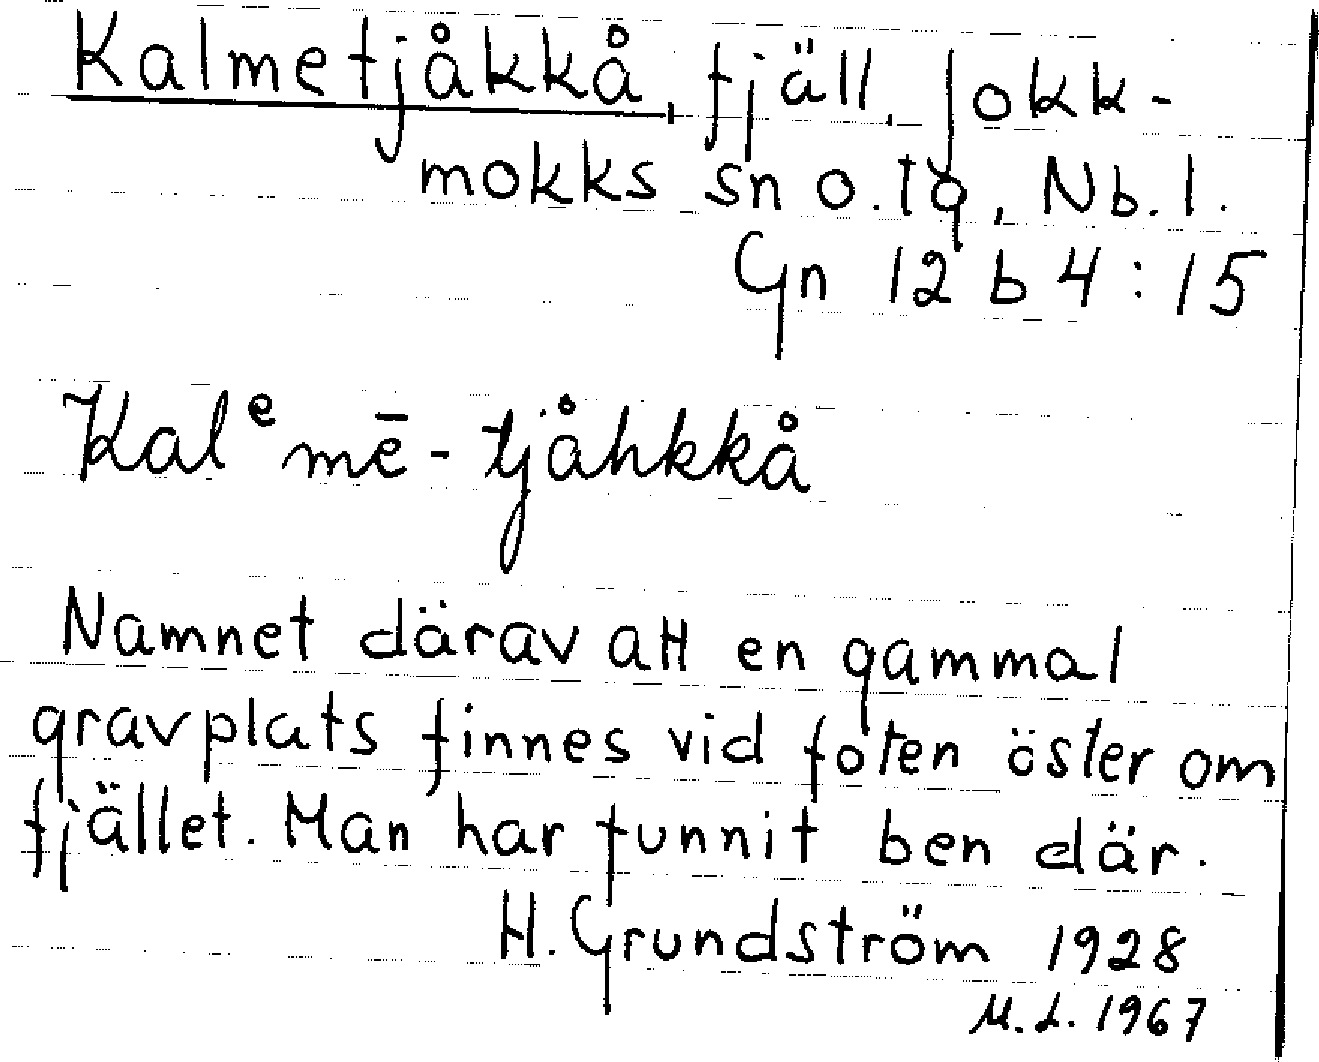 Kalmetjåkkå, fjäll, Jokk-
mokks sn o. tg, Nb. l.
Gn 12 b 4:15
Kalᵉmē-tjåhkkå
Namnet därav att en gammal
gravplats finnes vid foten öster om
fjället. Man har funnit ben där.
H. Grundström 1928
M.L. 1967